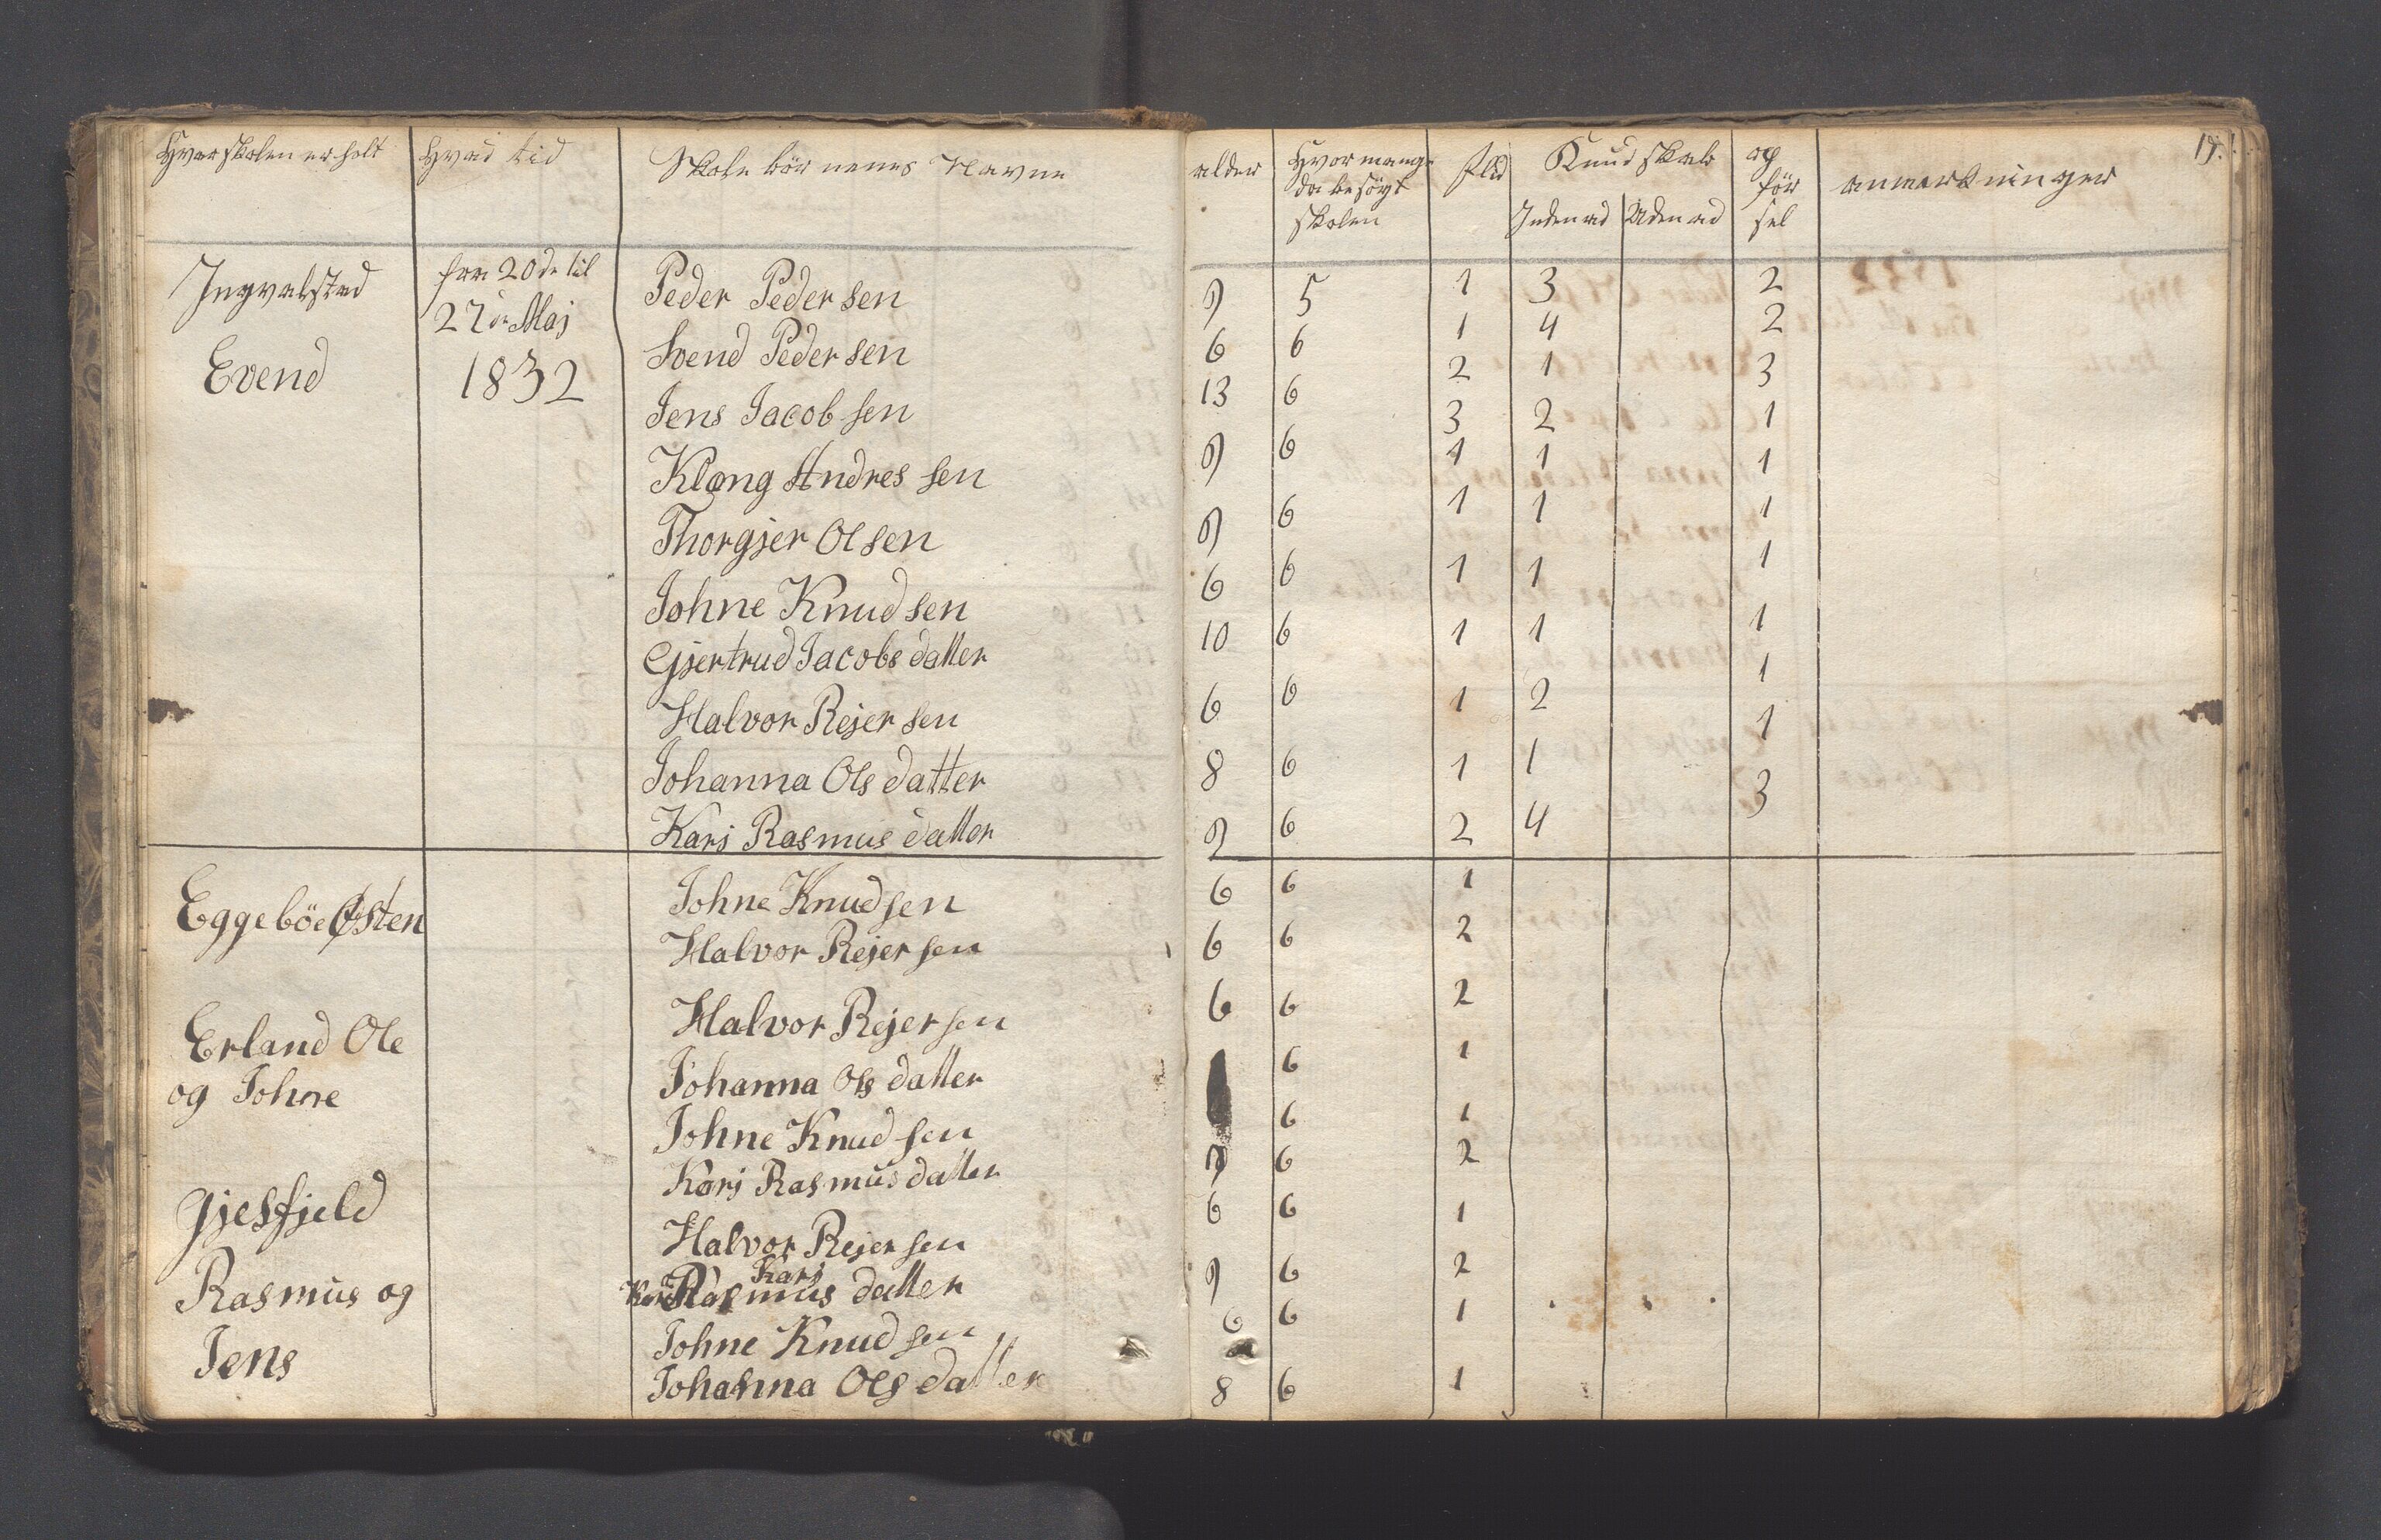 Hvor skolen er holt | Hvad tid | Skole börnenes Navne | alder | Hvor mange da besögt skolen | flid | Kundskab Inden ad | Uden ad | op för sel | anmerkninger | 19.
Ingvalstad | fra 20de til | Peder Pedersen | 9 | 5 | 1 | 3 | | 2
Evend | 27de Maj | Svend Pedersen | 6 | 6 | 1 | 4 | | 2
1832 | Jens Jacobsen | 13 | 6 | 2 | 1 | | 3
Klong Andressen | 9 | 6 | 3 | 2 | | 1
Thorgjer Olsen | 9 | 6 | 1 | 1 | | 1
Johne Knudsen | 6 | 6 | 1 | 1 | | 1
Gjertrud Jacobsdatter | 10 | 6 | 1 | 1 | | 1
Halvor Rejersen | 6 | 6 | 1 | 1 | | 1
Johanna Olsdatter | 8 | 6 | 1 | 2 | | 1
Kari Rasmusdatter | 9 | 6 | 1 | 1 | | 1
2 | 4 | | 3
Eggeböe Østen | Johne Knudsen | 6 | 6 | 1
Halvor Rejersen | 6 | 6 | 2
Erland Ole | Halvor Rejersen | 6 | 6 | 2
og Johne | Johanna Olsdatter | 6 | 1
Johne Knudsen | 6 | 1
Kari Rasmusdatter | 9 | 6 | 2
Gjesfjeld | Halvor Rejersen | 6 | 6 | 1
Kari
Rasmus og | Kari Rasmusdatter | 9 | 6 | 2
Jens | Johne Knudsen | 6 | 6 | 1
Johanna Olsdatter | 8 | 6 | 1